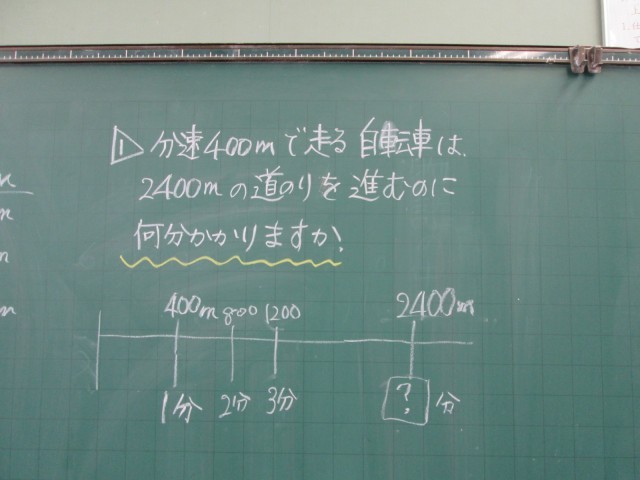 1 分速400mで走る自転車は、
2400mの道のりを進むのに
何分かかりますか?
400m 800 1200 2400m
1分 2分 3分 ? 分